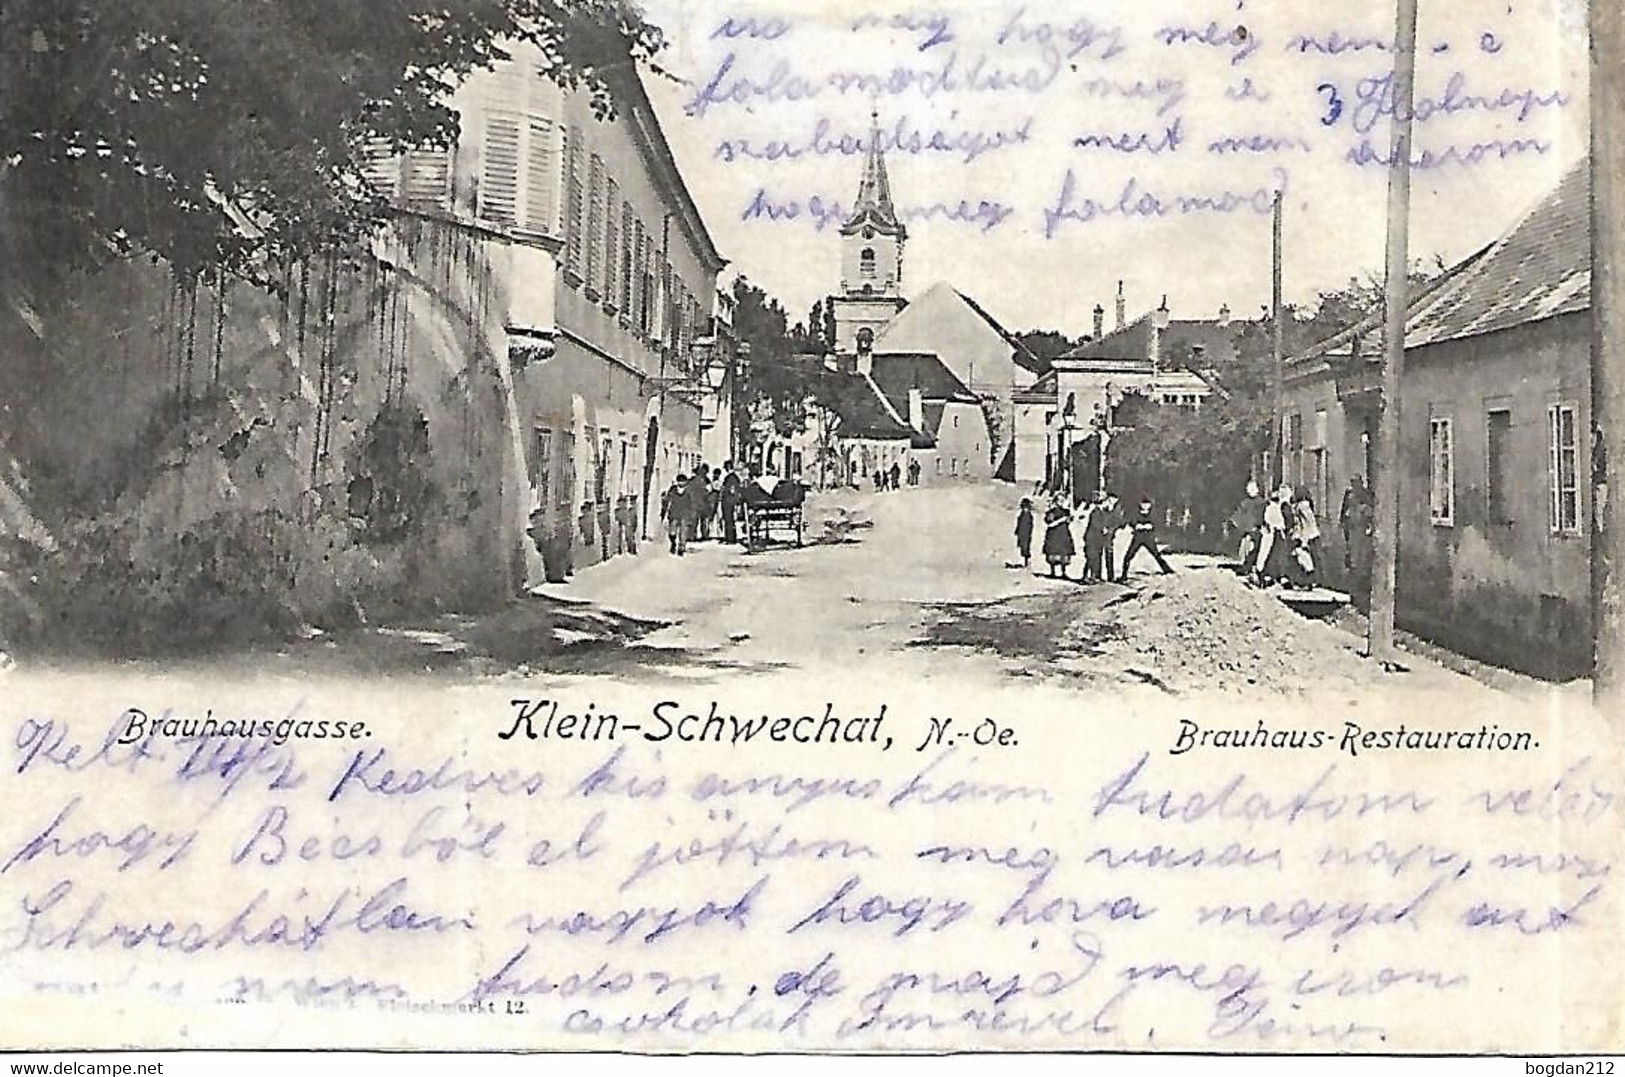 hogy még nem - é
folamodtad meg a 3 Holnapi
szabadságot mert nem akarom
hogy meg folamod.
Brauhausgasse. Klein-Schwechat, N.-Oe. Brauhaus-Restauration.
Kelt Kedves kis anyuskám tudatom veled
hogy Bécsből el jöttem még vasár nap, most
Schwechátlan vagyok hogy hova megyek azt
nem tudom, de majd meg irom
Wien I. Fleischmarkt 12.
csokolak Imrével. Jenő.
bogdan212